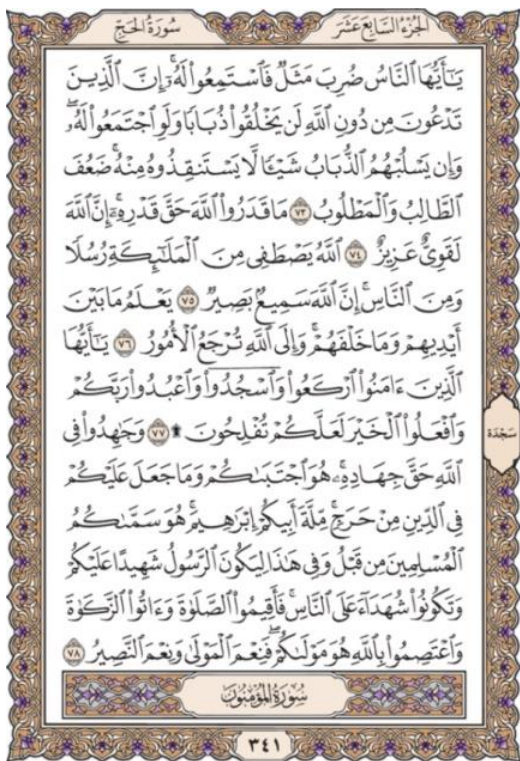 سُورَةُ الحَجِّ
الجُزْءُ السَّابِعَ عَشَرَ
يَٰٓأَيُّهَا ٱلنَّاسُ ضُرِبَ مَثَلٌ فَٱسْتَمِعُوا۟ لَهُۥٓ ۚ إِنَّ ٱلَّذِينَ
تَدْعُونَ مِن دُونِ ٱللَّهِ لَن يَخْلُقُوا۟ ذُبَابًا وَلَوِ ٱجْتَمَعُوا۟ لَهُۥ ۖ
وَإِن يَسْلُبْهُمُ ٱلذُّبَابُ شَيْـًٔا لَّا يَسْتَنقِذُوهُ مِنْهُ ۚ ضَعُفَ
ٱلطَّالِبُ وَٱلْمَطْلُوبُ ٧٣ مَا قَدَرُوا۟ ٱللَّهَ حَقَّ قَدْرِهِۦٓ ۗ إِنَّ ٱللَّهَ
لَقَوِىٌّ عَزِيزٌ ٧٤ ٱللَّهُ يَصْطَفِى مِنَ ٱلْمَلَٰٓئِكَةِ رُسُلًا
وَمِنَ ٱلنَّاسِ ۚ إِنَّ ٱللَّهَ سَمِيعٌۢ بَصِيرٌ ٧٥ يَعْلَمُ مَا بَيْنَ
أَيْدِيهِمْ وَمَا خَلْفَهُمْ ۗ وَإِلَى ٱللَّهِ تُرْجَعُ ٱلْأُمُورُ ٧٦ يَٰٓأَيُّهَا
ٱلَّذِينَ ءَامَنُوا۟ ٱرْكَعُوا۟ وَٱسْجُدُوا۟ وَٱعْبُدُوا۟ رَبَّكُمْ
وَٱفْعَلُوا۟ ٱلْخَيْرَ لَعَلَّكُمْ تُفْلِحُونَ ۩ ٧٧ وَجَٰهِدُوا۟ فِى
سَجْدَة
ٱللَّهِ حَقَّ جِهَادِهِۦ ۚ هُوَ ٱجْتَبَىٰكُمْ وَمَا جَعَلَ عَلَيْكُمْ
فِى ٱلدِّينِ مِنْ حَرَجٍ ۚ مِّلَّةَ أَبِيكُمْ إِبْرَٰهِيمَ ۚ هُوَ سَمَّىٰكُمُ
ٱلْمُسْلِمِينَ مِن قَبْلُ وَفِى هَٰذَا لِيَكُونَ ٱلرَّسُولُ شَهِيدًا عَلَيْكُمْ
وَتَكُونُوا۟ شُهَدَآءَ عَلَى ٱلنَّاسِ ۚ فَأَقِيمُوا۟ ٱلصَّلَوٰةَ وَءَاتُوا۟ ٱلزَّكَوٰةَ
وَٱعْتَصِمُوا۟ بِٱللَّهِ هُوَ مَوْلَىٰكُمْ ۖ فَنِعْمَ ٱلْمَوْلَىٰ وَنِعْمَ ٱلنَّصِيرُ ٧٨
سُورَةُ المُؤْمِنُونَ
٣٤١